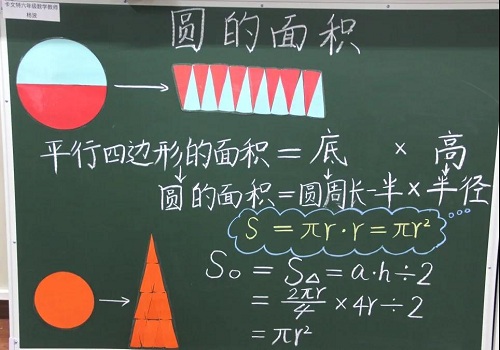 卡文特六年级数学教师
圆的面积
平行四边形的面积 = 底 × 高
圆的面积=圆周长一半×半径
S = πr·r = πr²
S○ = S△ = a·h÷2
= 2πr/4 ×4r÷2
= πr²